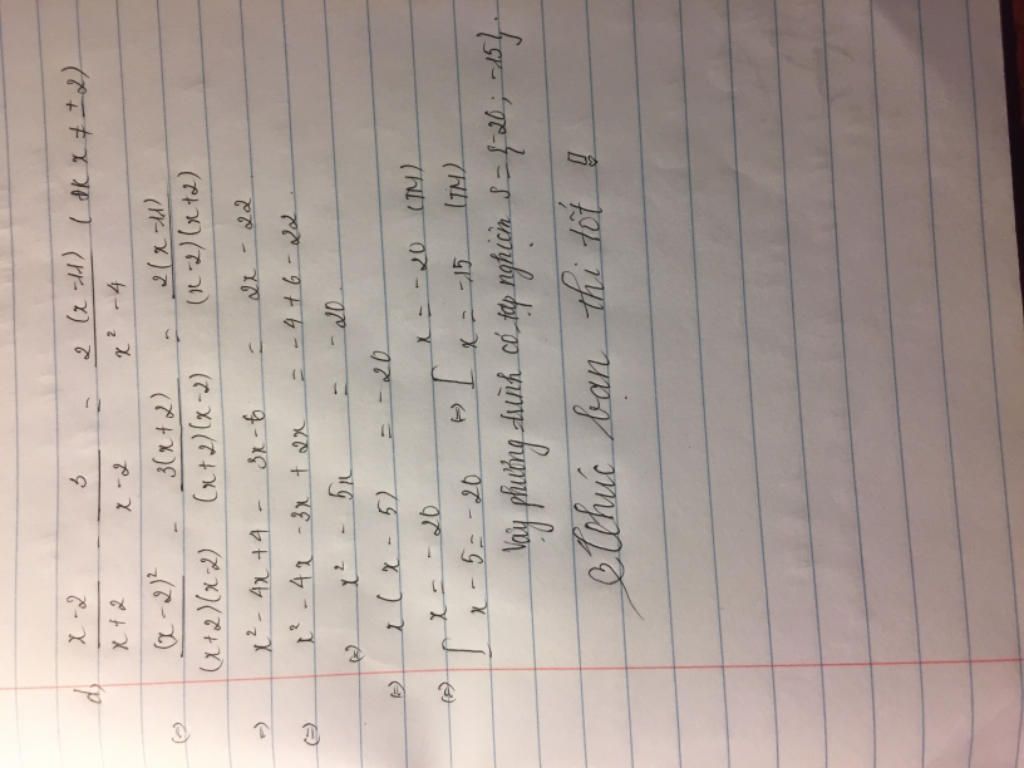 d) (x-2)/(x+2) - 3/(x-2) = 2(x-11)/(x²-4) (đk x ≠ ±2)
(=) (x-2)²/((x+2)(x-2)) - 3(x+2)/((x+2)(x-2)) = 2(x-11)/((x-2)(x+2))
=) x² - 4x + 4 - 3x - 6 = 2x - 22
(=) x² - 4x - 3x + 2x = -4 + 6 - 22
(=) x² - 5x = -20
(=) x(x-5) = -20
(=) [ x = -20 (=) [ x = -20 (TM)
x - 5 = -20 x = -15 (TM)
Vậy phương trình có tập nghiệm S = {-20; -15}.
Chúc bạn thi tốt !!